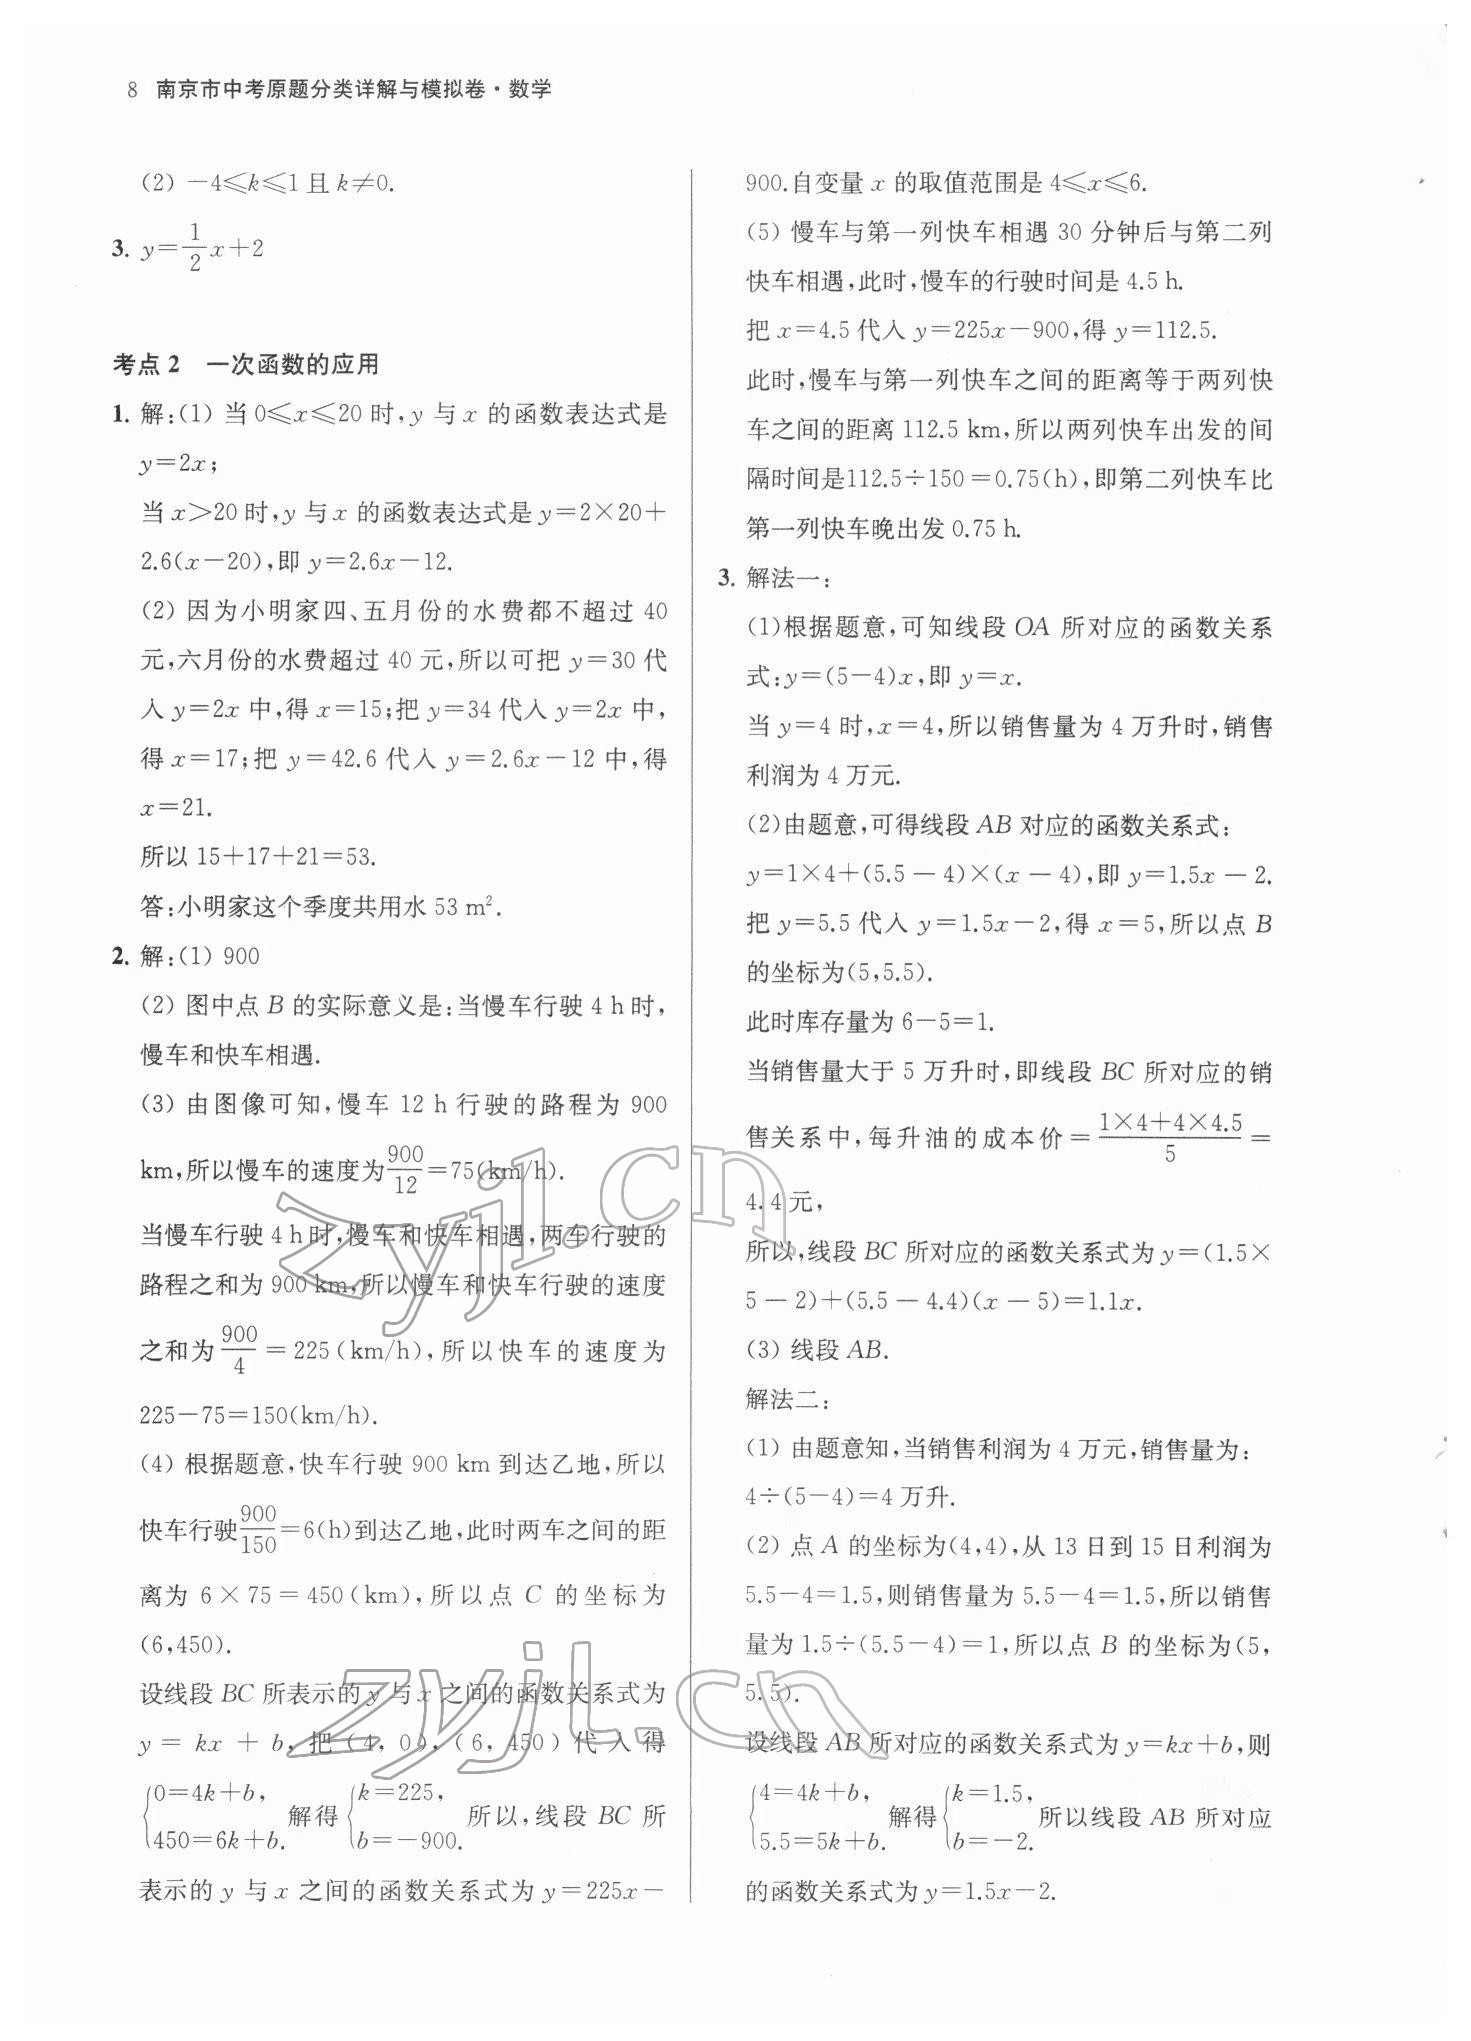 8 南京市中考原题分类详解与模拟卷·数学
(2) －4≤k≤1 且 k≠0.
3. y＝1/2x＋2
考点 2 一次函数的应用
1. 解:(1) 当 0≤x≤20 时,y 与 x 的函数表达式是
y＝2x;
当 x＞20 时,y 与 x 的函数表达式是 y＝2×20＋
2.6(x－20),即 y＝2.6x－12.
(2) 因为小明家四、五月份的水费都不超过 40
元,六月份的水费超过 40 元,所以可把 y＝30 代
入 y＝2x 中,得 x＝15;把 y＝34 代入 y＝2x 中,
得 x＝17;把 y＝42.6 代入 y＝2.6x－12 中,得
x＝21.
所以 15＋17＋21＝53.
答:小明家这个季度共用水 53 m².
2. 解:(1) 900
(2) 图中点 B 的实际意义是:当慢车行驶 4 h 时,
慢车和快车相遇.
(3) 由图像可知,慢车 12 h 行驶的路程为 900
km,所以慢车的速度为900/12＝75(km/h).
当慢车行驶 4 h 时,慢车和快车相遇,两车行驶的
路程之和为 900 km,所以慢车和快车行驶的速度
之和为900/4＝225(km/h),所以快车的速度为
225－75＝150(km/h).
(4) 根据题意,快车行驶 900 km 到达乙地,所以
快车行驶900/150＝6(h)到达乙地,此时两车之间的距
离为 6×75＝450(km),所以点 C 的坐标为
(6,450).
设线段 BC 所表示的 y 与 x 之间的函数关系式为
y＝kx＋b,把(4,0),(6,450)代入得
{0＝4k＋b, 450＝6k＋b. 解得{k＝225, b＝－900. 所以,线段 BC 所
表示的 y 与 x 之间的函数关系式为 y＝225x－
900.自变量 x 的取值范围是 4≤x≤6.
(5) 慢车与第一列快车相遇 30 分钟后与第二列
快车相遇,此时,慢车的行驶时间是 4.5 h.
把 x＝4.5 代入 y＝225x－900,得 y＝112.5.
此时,慢车与第一列快车之间的距离等于两列快
车之间的距离 112.5 km,所以两列快车出发的间
隔时间是112.5÷150＝0.75(h),即第二列快车比
第一列快车晚出发 0.75 h.
3. 解法一:
(1)根据题意,可知线段 OA 所对应的函数关系
式:y＝(5－4)x,即 y＝x.
当 y＝4 时,x＝4,所以销售量为 4 万升时,销售
利润为 4 万元.
(2)由题意,可得线段 AB 对应的函数关系式:
y＝1×4＋(5.5－4)×(x－4),即 y＝1.5x－2.
把 y＝5.5 代入 y＝1.5x－2,得 x＝5,所以点 B
的坐标为(5,5.5).
此时库存量为 6－5＝1.
当销售量大于 5 万升时,即线段 BC 所对应的销
售关系中,每升油的成本价＝(1×4＋4×4.5)/5＝
4.4 元,
所以,线段 BC 所对应的函数关系式为 y＝(1.5×
5－2)＋(5.5－4.4)(x－5)＝1.1x.
(3) 线段 AB.
解法二:
(1) 由题意知,当销售利润为 4 万元,销售量为:
4÷(5－4)＝4 万升.
(2) 点 A 的坐标为(4,4),从 13 日到 15 日利润为
5.5－4＝1.5,则销售量为 5.5－4＝1.5,所以销售
量为 1.5÷(5.5－4)＝1,所以点 B 的坐标为(5,
5.5).
设线段 AB 所对应的函数关系式为 y＝kx＋b,则
{4＝4k＋b, 5.5＝5k＋b. 解得{k＝1.5, b＝－2. 所以线段 AB 所对应
的函数关系式为 y＝1.5x－2.
zyjl.cn
zyjl.cn